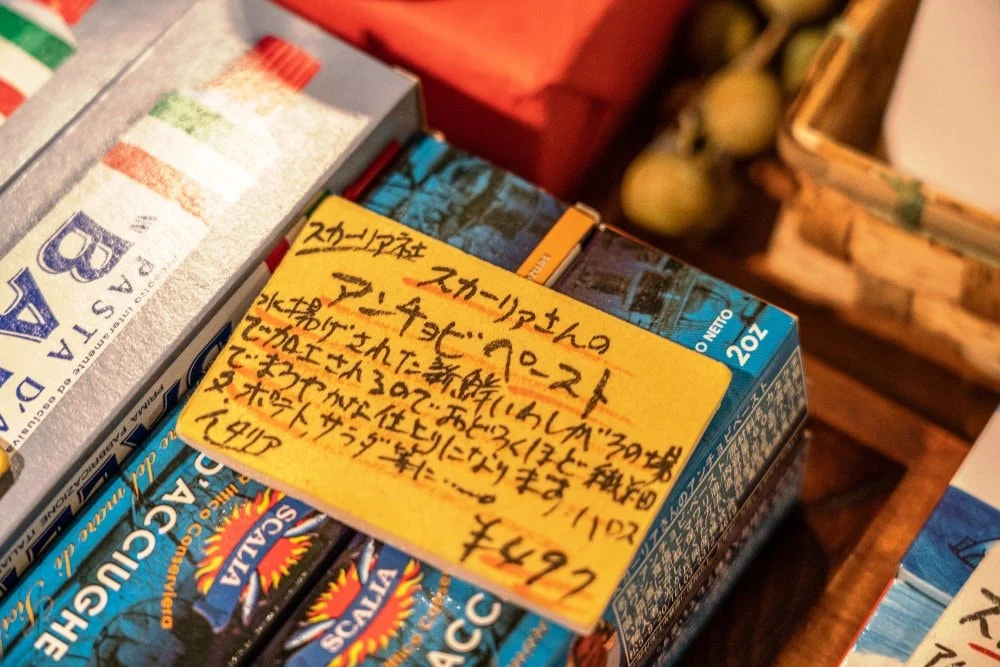 スカーリア社
スカーリアさんの
アンチョビペースト
水揚げされた新鮮いわしがその場
で加工されるのでおどろくほど繊細
でまろやかな仕上りになります。パス
タ、ポテトサラダ等に……。
イタリア
¥497
BA
PASTA D'A
Prodotto interamente ed esclusiv
PRIMA FABBRICAZIONE ITAL
O NETTO
2OZ
del mare di
D'ACCIUGHE
nico Conserviero
SCALIA
SCALIA
ACC